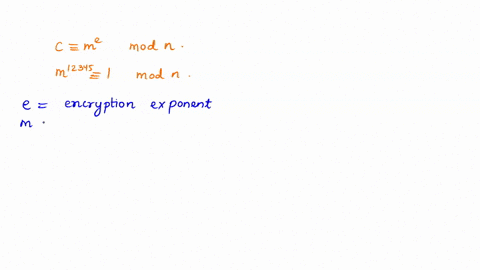 c ≡ m^e mod n.
m^12345 ≡ 1 mod n.
e = encryption exponent
m .